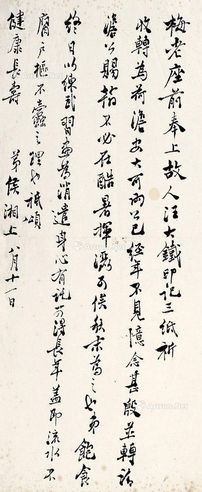 梅老座前奉上故人汪大鐵印記三紙祈
收轉為荷澹安大可兩公已經年不見憶念甚殷並轉請
澹公賜翰不必在酷暑揮灑可俟秋末為之也弟飽食
終日以練武習畫為消遣身心有說可得長年蓋即流水不
腐戶樞不蠹之理也祇頌
健康長壽
弟侯湘上八月十一日